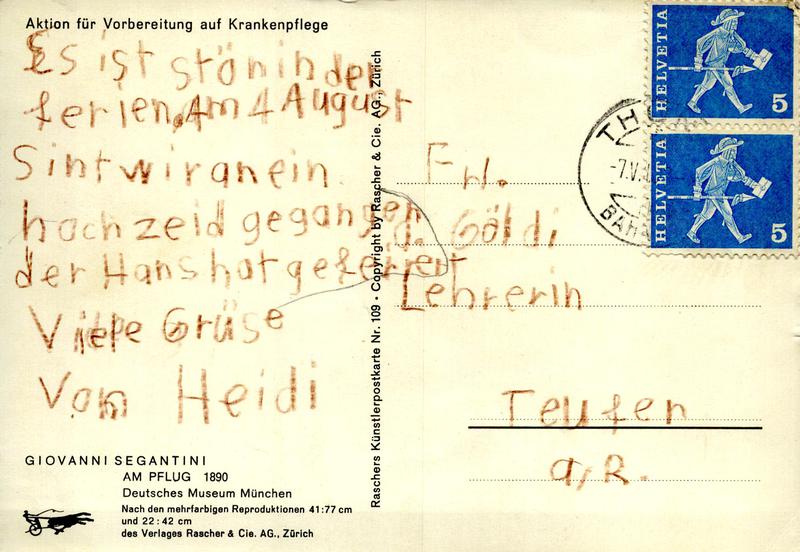 Aktion für Vorbereitung auf Krankenpflege
Es ist stönin den
ferien. Am 4 August
Sint wir an ein
hochzeid gegangen
der Hans hat gefeirert
Viele Grüse
Vom Heidi
GIOVANNI SEGANTINI
AM PFLUG 1890
Deutsches Museum München
Nach den mehrfarbigen Reproduktionen 41:77 cm
und 22:42 cm
des Verlages Rascher & Cie. AG., Zürich
Raschers Künstlerpostkarte Nr. 109 • Copyright by Rascher & Cie. AG., Zürich
HELVETIA
5
HELVETIA
5
-7.V
Frl.
J. Göldi
Lehrerin
Teufen
a/R.